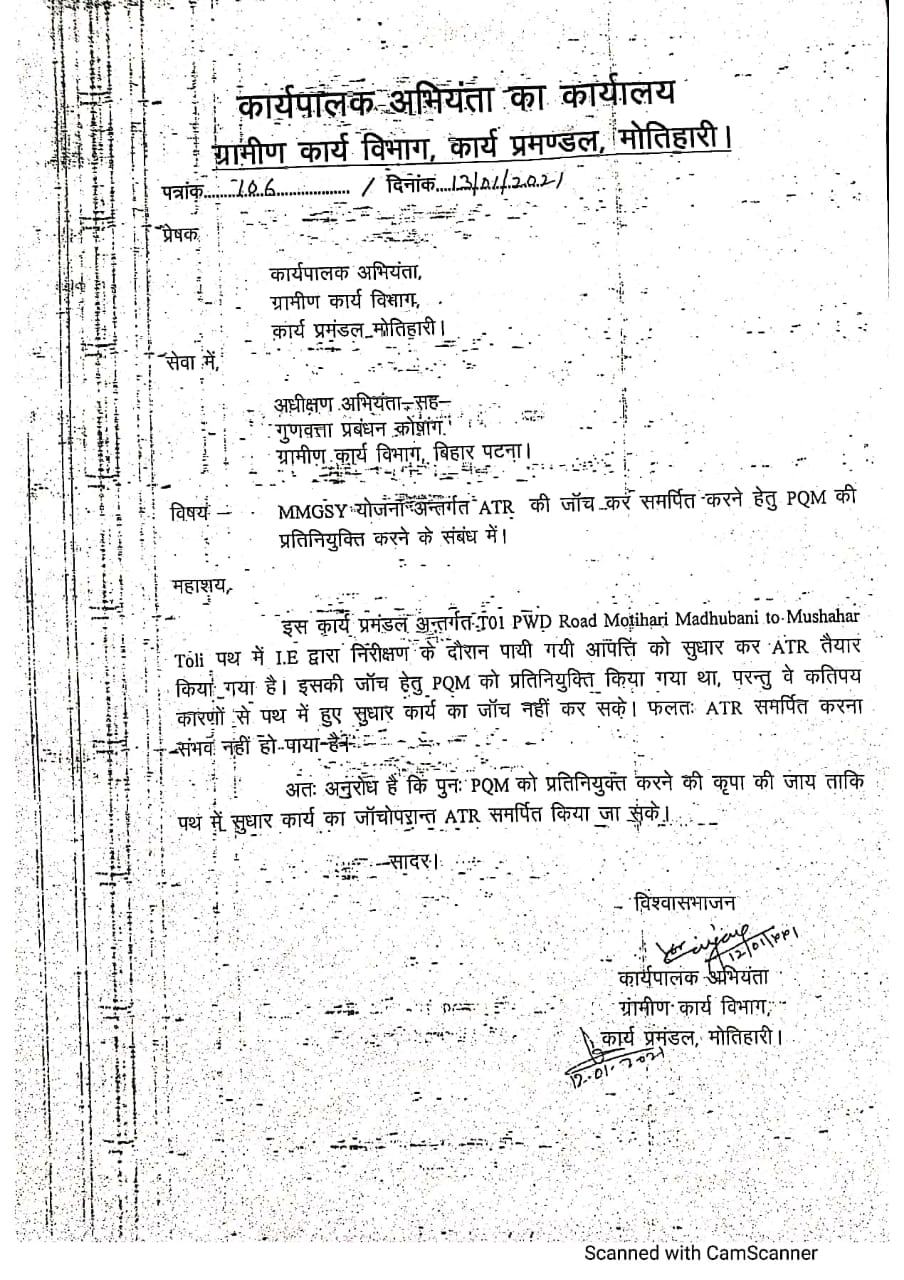 कार्यपालक अभियंता का कार्यालय
ग्रामीण कार्य विभाग, कार्य प्रमण्डल, मोतिहारी।
पत्रांक.......106.................. / दिनांक....13/01/2021
प्रेषक
कार्यपालक अभियंता,
ग्रामीण कार्य विभाग,
कार्य प्रमंडल मोतिहारी।
सेवा में,
अधीक्षण अभियंता–सह–
गुणवत्ता प्रबंधन कोषांग
ग्रामीण कार्य विभाग, बिहार पटना।
विषय – MMGSY योजना अन्तर्गत ATR की जाँच कर समर्पित करने हेतु PQM की
प्रतिनियुक्ति करने के संबंध में।
महाशय,
इस कार्य प्रमंडल अन्तर्गत T01 PWD Road Motihari Madhubani to Mushahar
Toli पथ में I.E द्वारा निरीक्षण के दौरान पायी गयी आपत्ति को सुधार कर ATR तैयार
किया गया है। इसकी जाँच हेतु PQM को प्रतिनियुक्ति किया गया था, परन्तु वे कतिपय
कारणों से पथ में हुए सुधार कार्य का जाँच नहीं कर सके। फलतः ATR समर्पित करना
संभव नहीं हो पाया है।
अतः अनुरोध है कि पुनः PQM को प्रतिनियुक्त करने की कृपा की जाय ताकि
पथ में सुधार कार्य का जाँचोपरान्त ATR समर्पित किया जा सके।
सादर।
विश्वासभाजन
कार्यपालक अभियंता
ग्रामीण कार्य विभाग,
कार्य प्रमंडल, मोतिहारी।
12.01.2021
Scanned with CamScanner